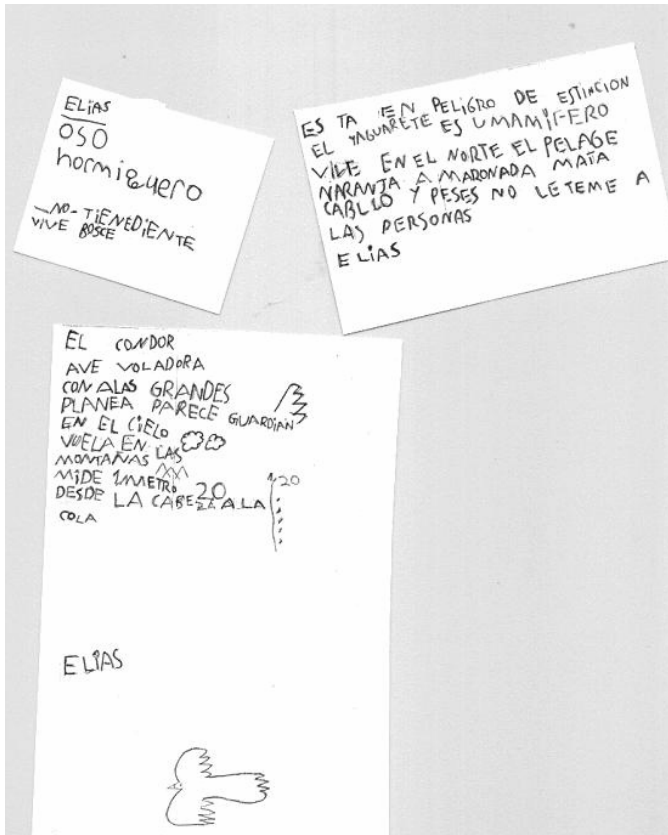 ELiAS
OSO
hormiguero
-NO-TiENEDiENTE
VIVE BOSCE
ES TA EN PELIGRO DE ESTINCION
EL YAGUARETE ES UMAMiFERO
VIVE EN EL NORTE EL PELAGE
NARANJA A MARONADA MATA
CABLLO Y PESES NO LE TEME A
LAS PERSONAS
E LiAS
EL CONDOR
AVE VOLADORA
CON ALAS GRANDES
PLANEA PARECE GUARDIAN
EN EL CIELO
VUELA EN LAS
MONTAÑAS
MiDE 1METRO 20
DESDE LA CABEZA A LA
COLA
1,20
ELIAS